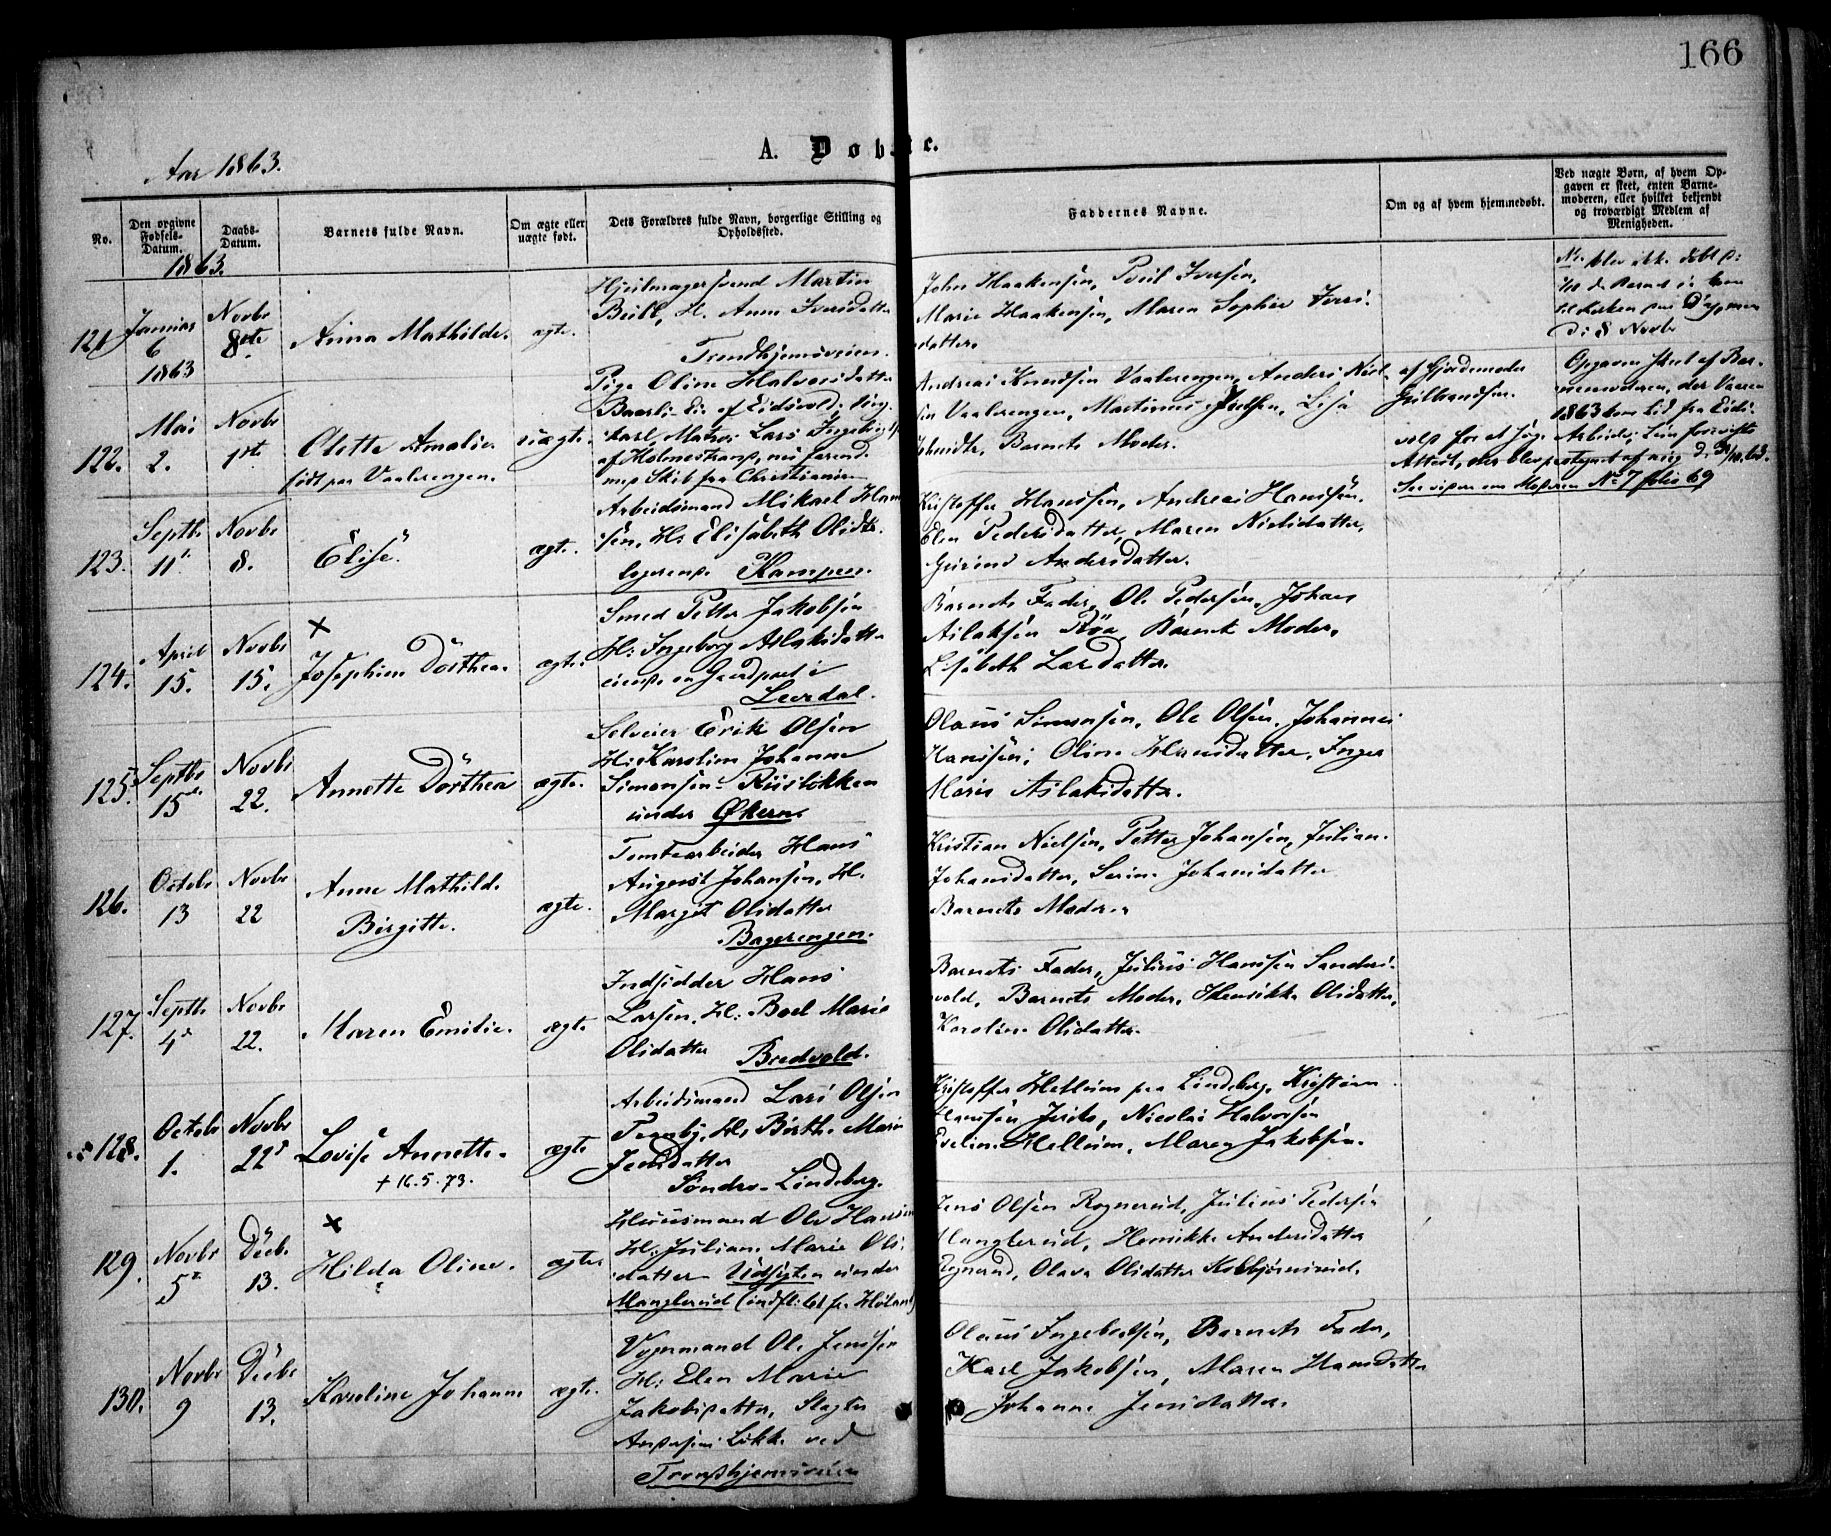 166
A. Døbte.
Aar 1863.
No.
Den opgivne Fødsels-Datum.
Daabs-Datum.
Barnets fulde Navn.
Om ægte eller uægte født.
Dets Forældres fulde Navn, borgerlige Stilling og Opholdssted.
Faddernes Navne.
Om og af hvem hjemmedøbt.
Ved uægte Børn, af hvem Opgaven er skeet, enten Barnemoderen, eller hvilket bekjendt og troværdigt Medlem af Menigheden.
1863.
121
Januar
6
1863
Novbr
8de
Anna Mathilde.
ægte.
Martin
H. Anne Iversdatter
Trondhjemsveien.
John Haakensen, Poul Iversen,
Marie Haakensen, Maren Sophie Iversdatter.
blev ikke døbt
8 Novbr
122.
Mai
2.
Novbr
1ste
Olette Amalie.
født paa Vaalerengen.
uægte.
Pige Oline Halvorsdatter
af Eidsvold. Ung-
karl, Matros Lars
af Holmestrand,
Skib fra Christiania
Andreas Knudsen Vaalerengen, Anders
Vaalerengen, Martinus
Schmidt, Barnets Moder.
af Gjordemoder
Gulbrandsen.
Opgaven skeet af Bar-
nemoderen, der Vaaren
1863 kom hid fra Eids-
vold for at søge Arbeide; hun foreviste
Attest, der blev paategnet af mig
No 7 folio 69
123.
Septbr
11
Novbr
8.
Elise
ægte.
Arbeidsmand Mikael Han-
sen, H: Elisabeth Olsdtr.
logerende Kampen.
Kristoffer Hanssen, Andreas Hanssen.
Elen Pedersdatter, Maren Nielsdatter,
Gurine Andersdatter.
124.
April
15.
Novbr
15.
×
Josephine Dorthea.
ægte.
Smed Petter Jakobsen
H: Ingeborg Aslaksdatter
eiende en Gaardpart i
Leerdal.
Barnets Fader, Ole Pedersen, Johan
Aslaksen Røa, Barnets Moder,
Lisabeth Larsdatter.
125.
Septbr
15de
Novbr
22.
Annette Dorthea
ægte.
Selveier Erik Olsen
H: Karoline Johanne
Simonsen. Riisløkken
under Økern.
Olaus Simonsen, Ole Olsen, Johannes
Hanssen; Oline Hansdatter, Inger
Marie Aslaksdatter.
126.
Octobr
13
Novbr
22
Anne Mathilde
Birgitte.
ægte.
Tomtearbeider Hans
August Johansen, H.
Margit Olsdatter
Bagerengen.
Kristian Nielsen, Petter Johansen, Julian
Johansdatter, Serine Johansdatter
Barnets Moder.
127.
Septbr
4de
Novbr
22.
Maren Emilie.
ægte
Indsidder Hans
Larsen, H: Boel Marie
Olsdatter Bredvold.
Barnets Fader, Julius Hanssen Sanders-
vold, Barnets Moder, Henrikke Olsdatter,
Karoline Olsdatter.
128.
Octobr
1.
Novbr
22d
Lovise Annette.
+ 16.5.73.
ægte
Arbeidsmand Lars Olsen
Ternby, H: Birthe Marie
Jensdatter
Søndre Lindeberg.
Kristoffer Hellum paa Lindeberg, Kristian
Hanssen Nicolai Halvorsen
Eveline Hellum, Maren Jakobsen.
129.
Novbr
5te
Decbr
13.
×
Hilda Oline.
ægte
Huusmand Ole Hansen
H: Juliane Marie Ols-
datter Udsigten under
Manglerud (indflyttet fra Høland)
Jens Olsen Rognerud, Julius Pedersen
Manglerud, Henrikke Andersdatter
Rognerud, Olava Olsdatter Kolbjørnsrud.
130.
Novbr
9
Decbr
13.
Karoline Johanne
ægte.
Vognmand Ole Jensen
H: Elen Marie
Jakobsdatter, Slagter
Andersens Løkke ved
Trondhjemsveien
Olaus Ingebretsen, Barnets Fader,
Karl Jakobsen, Maren Hansdatter
Johanne Jensdatter.